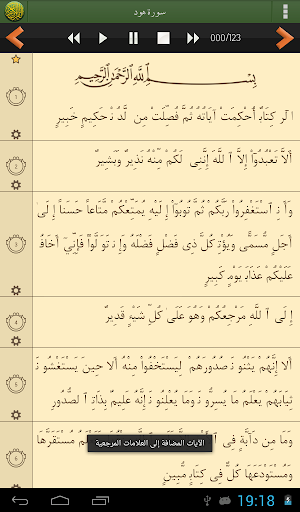 سورة هود
000/123
بِسْمِ اللَّهِ الرَّحْمَٰنِ الرَّحِيمِ
1
الٓر كِتَابٌ أُحْكِمَتْ آيَاتُهُ ثُمَّ فُصِّلَتْ مِن لَّدُنْ حَكِيمٍ خَبِيرٍ
2
أَلَّا تَعْبُدُوٓا۟ إِلَّا ٱللَّهَ إِنَّنِى لَكُم مِّنْهُ نَذِيرٌ وَبَشِيرٌ
3
وَأَنِ ٱسْتَغْفِرُوا۟ رَبَّكُمْ ثُمَّ تُوبُوٓا۟ إِلَيْهِ يُمَتِّعْكُم مَّتَاعًا حَسَنًا إِلَىٰٓ
أَجَلٍ مُّسَمًّى وَيُؤْتِ كُلَّ ذِى فَضْلٍ فَضْلَهُ وَإِن تَوَلَّوْا۟ فَإِنِّىٓ أَخَافُ
عَلَيْكُمْ عَذَابَ يَوْمٍ كَبِيرٍ
4
إِلَى ٱللَّهِ مَرْجِعُكُمْ وَهُوَ عَلَىٰ كُلِّ شَىْءٍ قَدِيرٌ
5
أَلَآ إِنَّهُمْ يَثْنُونَ صُدُورَهُمْ لِيَسْتَخْفُوا۟ مِنْهُ أَلَا حِينَ يَسْتَغْشُونَ
ثِيَابَهُمْ يَعْلَمُ مَا يُسِرُّونَ وَمَا يُعْلِنُونَ إِنَّهُ عَلِيمٌۢ بِذَاتِ ٱلصُّدُورِ
6
وَمَا مِن دَآبَّةٍ فِى مُسْتَقَرَّهَا
الآيات المضافة إلى العلامات المرجعية
وَمُسْتَوْدَعَهَا كُلٌّ فِى كِتَابٍ مُّبِينٍ
19:18